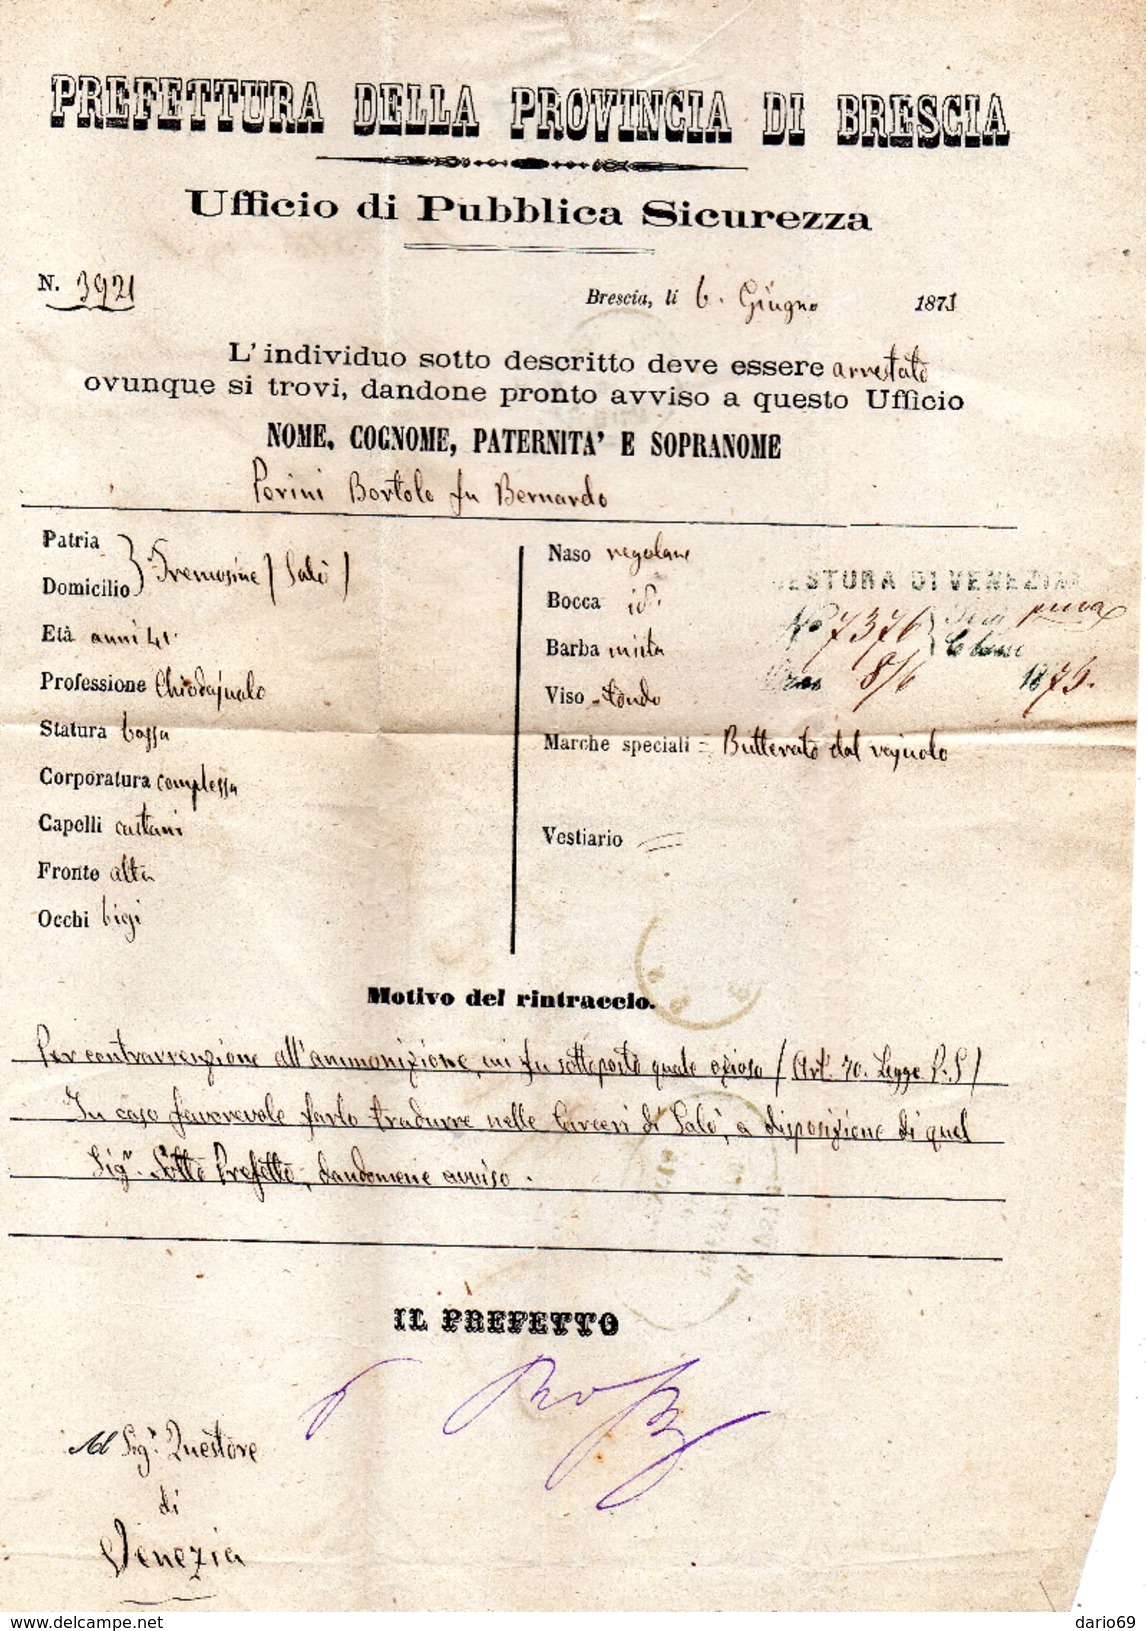 PREFETTURA DELLA PROVINCIA DI BRESCIA
Ufficio di Pubblica Sicurezza
N. 3921
Brescia, li 6. Giugno 1873
L'individuo sotto descritto deve essere arrestato
ovunque si trovi, dandone pronto avviso a questo Ufficio
NOME, COGNOME, PATERNITA' E SOPRANOME
Porini Bortolo fu Bernardo
Patria
Domicilio } Tremosine (Salò)
Età anni 41.
Professione Chiodajuolo
Statura bassa
Corporatura complessa
Capelli castani
Fronte alta
Occhi bigi
Naso regolare
Bocca id.
Barba mista
Viso tondo
Marche speciali = Butterato dal vajuolo
Vestiario =
QUESTURA DI VENEZIA
No 7376
8/6 1873.
Motivo del rintraccio.
Per contravvenzione all'ammonizione, cui fu sottoposto quale ozioso (Art. 70. Legge P.S)
In caso favorevole farlo tradurre nelle Carceri di Salò, a disposizione di quel
Sigr. Sotto Prefetto, dandomene avviso.
IL PREFETTO
Al Sigr Questore
di
Venezia
delcampe.net
dario69